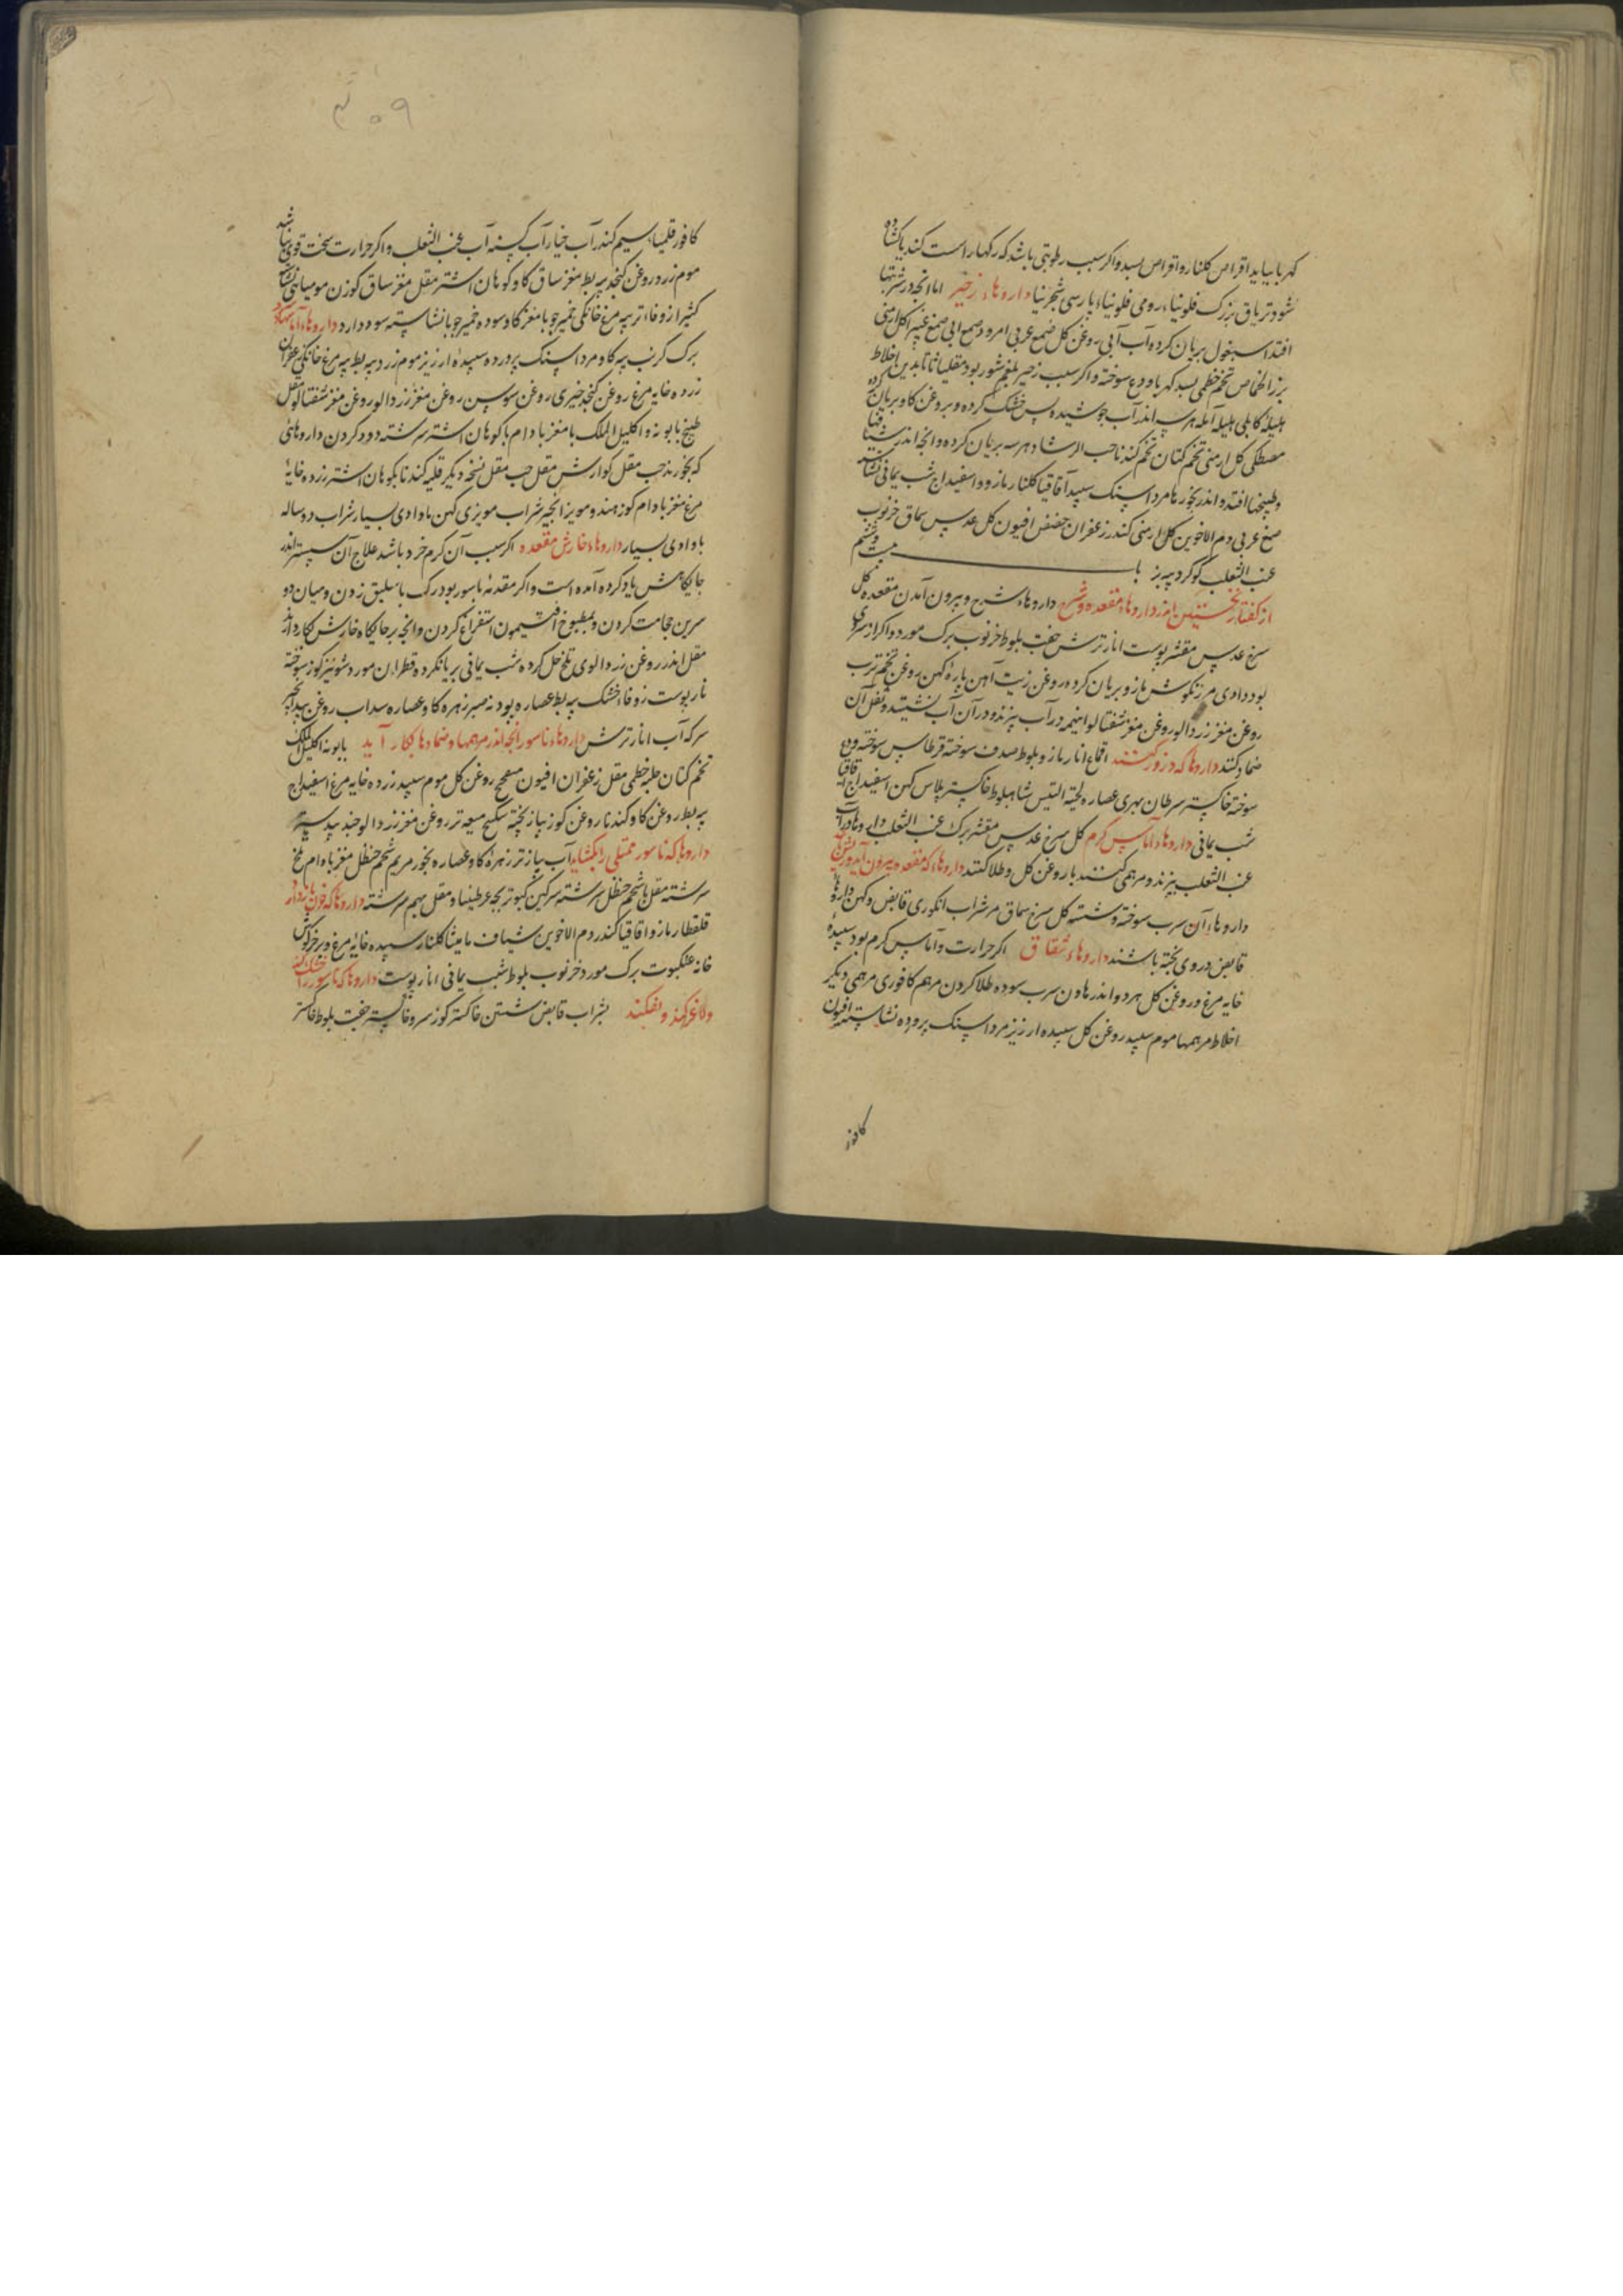 کهربا بیاید اقراص کلنار و اقراص بسد و اکر سبب رطوبتی باشد که رکها را سست کند یا کشاده
شود تریاق بزرک فلونیاء رومی فلونیاء پارسی شجرنیا داروهاء زحیر اما انچه در شربتها
افتد اسبغول بریان کرده آب آبی روغن کل صمغ عربی امرود صمغ آبی صمغ کل ارمنی
بزر الحماض تخم خطمی بسد کهربا ودع سوخته و اکر سبب زحیر بلغم شور بود مقلیاثا تا بدین اخلاط
هلیله کابلی بلیله آمله هر سه اندر آب جوشیده پس خشک کرده و بروغن کاو بریان کرده
مصطکی کل ارمنی تخم کتان تخم کندنا حب الرشاد هر سه بریان کرده و انچه اندر شیافها
و طبیخها افتد و اندر بخورها مرداسنک سپید آقاقیا کلنار مازو و اسفیداج شب یمانی نشاسته
صمغ عربی دم الاخوین کل ارمنی کندر زعفران حضض افیون کل عدس سماق خرنوب
عنب الثعلب کوکرد پیه بز باب بیست و ششم
از کفتار نخستین اندر داروهاء مقعده و شرج داروهاء شرح و بیرون آمدن مقعده کل
سرخ عدس مقشر پوست انار ترش جفت بلوط خرنوب برک مورد و اکر از سردی
بود دادی مرزنکوش مازو بریان کرده روغن زیت آهن پاره کهن روغن تخم ترب
روغن مغز زردالو روغن مغز شفتالو اینهمه در آب بپزند و در آن آب نشینند و ثفل آن
ضماد کنند داروها که در زور کنند اقماع انار مازو بلوط صدف سوخته قرطاس سوخته ودع
سوخته خاکستر سرطان بهری عصاره لحیة التیس شاهبلوط خاکستر پلاس کهن اسفیداج اقاقیا
شب یمانی داروهاء آماس کرم کل سرخ عدس مقشر برک عنب الثعلب
عنب الثعلب بپزند و مرهمی کنند با روغن کل و طلا کنند داروهاء که مقعده بیرون آید
داروهاء آن سرب سوخته و شسته کل سرخ سماق مر شراب انکوری قابض و کهن داروهاء
قابض در وی پخته باشند داروهاء شقاق اکر حرارت و آماس کرم بود سپیدهٔ
خایه مرغ و روغن کل هر دو اندر هاون سرب سوده طلا کردن مرهم کافوری مرهمی دیکر
اخلاط مرهمها موم سپید روغن کل سپیده ارزیز مرداسنک پرورده نشاسته افیون
کافور
۳۰۹
کافور قلمیاء سیم کندر آب خیار آب کشنه آب عنب الثعلب و اکر حرارت سخت قوی نباشد
موم زرد روغن کنجد پیه بط مغز ساق کاو کوهان اشتر مقل مغز ساق کوزن مومیائی نشاسته
کثیرا زوفاء تر پیه مرغ خانکی خمیر جو با مغز کاو سوده خمیر جو با نشاسته سود دارد داروهاء آماسهاء
برک کرنب پیه کاو مرداسنک پرورده سپیده ارزیز موم زرد پیه بط پیه مرغ خانکی زعفران
زرده خایه مرغ روغن کنجد خیری روغن سوسن روغن مغز زردالو روغن مغز شفتالو مقل
طبیخ بابونه و اکلیل الملک با مغز بادام با کوهان اشتر سرشته دود کردن داروهائی
که بخورند حب مقل کوارش مقل حب مقل نسخه دیکر قلیه کندنا بکوهان اشتر زرده خایهٔ
مرغ مغز بادام کوز هندو مویز انجیر شراب مویزی کهن با دادی بسیار شراب دو ساله
با دادی بسیار داروهاء خارش مقعده اکر سبب آن کرم خرد باشد علاج آن سپستر اندر
جایکاهش یاد کرده آمده است و اکر مقدمهٔ باسور بود رک باسلیق زدن و میان دو
سرین حجامت کردن و بمطبوخ افتیمون استفراغ کردن و انچه بر جایکاه خارش بکار دارند
مقل اندر روغن زردالوی تلخ حل کرده شب یمانی بریان کرده قطران مورد شونیز کوز سوخته
نار پوست زوفاء خشک پیه بط عصاره پودنه صبر زهره کاو عصاره سداب روغن بیدانجیر
سرکه آب انار ترش داروهاء ناسور انچه اندر مرهمها و ضمادها بکار آید بابونه اکلیل الملک
تخم کتان حلبه خطمی مقل زعفران افیون میفختج روغن کل موم سپید زرده خایه مرغ اسفیداج
پیه بط روغن کاو کندنا روغن کوز پیاز پخته سکبینج میعه تر روغن مغز زردالو جندبیدستر
داروها که ناسور ممتلی را بکشاید آب پیاز تر زهرهٔ کاو عصاره بخور مریم شحم حنظل مغز بادام تلخ
سرشته مقل با شحم حنظل سرشته سرکین کبوتر بچه عرطنیثا و مقل بهم سرشته داروها که خون باز دارد
قلقطار مازو اقاقیا کندر دم الاخوین شیاف مامیثا کلنار سپیده خایهٔ مرغ وبر خرکوش
خانه عنکبوت برک مورد خرنوب بلوط شب یمانی انار پوست داروها که ناسور را خشک کند
و لاغر کند و بفکند بشراب قابض شستن خاکستر کوز سرو خاکستر جفت بلوط خاکستر